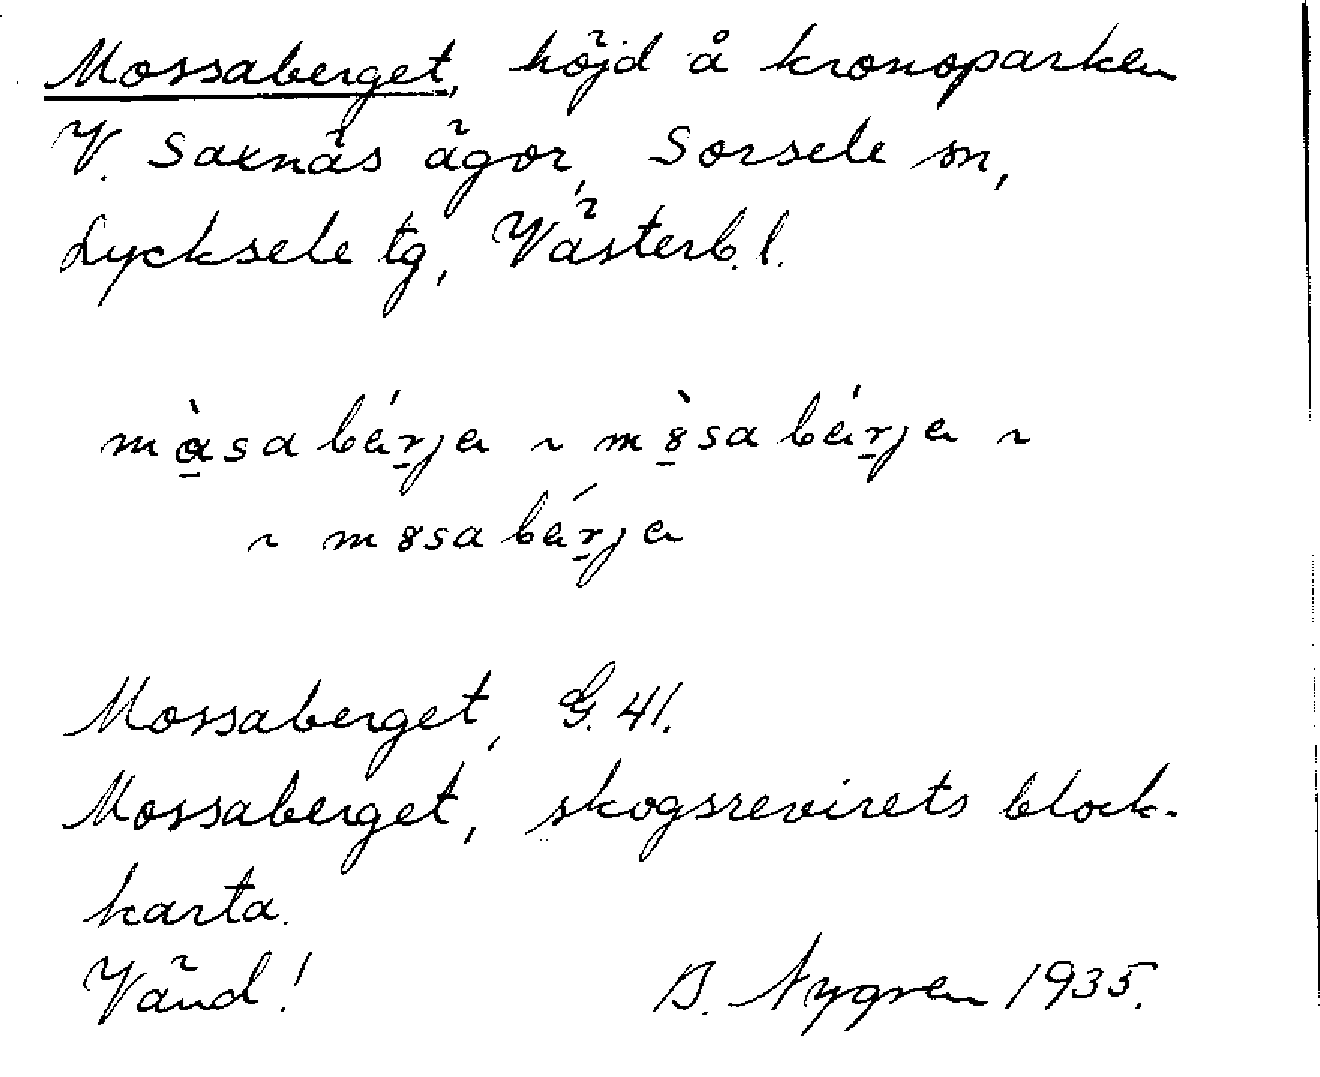 Mossaberget, höjd å kronoparken
V. Saxnäs ägor, Sorsele sn,
Lycksele tg, Västerb. l.
mɑ̠̀sabǽr̠ja ~ m8̠̀sabǽr̠ja ~
~ m8sabǽr̠ja
Mossaberget, G. 41.
Mossaberget, skogsrevirets block-
karta.
Vänd! B. Nygren 1935.